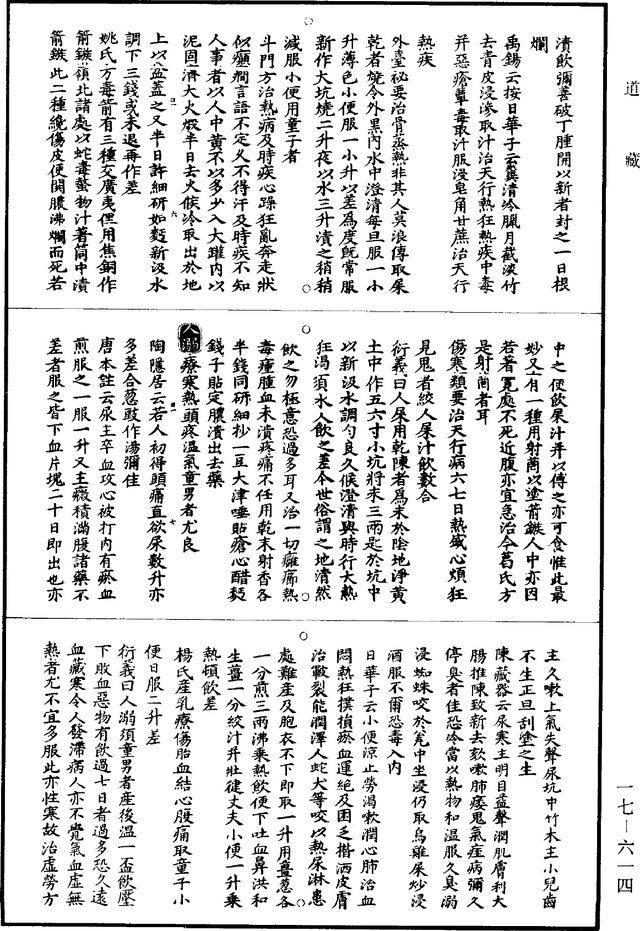 道藏
漬飲彌善破丁腫開以新者封之一日根
爛
禹錫云按日華子云糞清冷臘月截淡竹
去青皮浸滲取汁治天行熱狂熱疾中毒
并惡瘡蕈毒取汁服浸皂角甘蔗治天行
熱疾
外臺祕要治骨蒸熱非其人莫浪傳取屎
乾者燒令外黑內水中澄清每旦服一小
升薄色小便服一小升以差為度旣常服
新作大坑燒二升夜以水三升漬之稍稍
減服小便用童子者
斗門方治熱病及時疾心躁狂亂奔走狀
似癲癇言語不定久不得汗及時疾不知
人事者以人中黃不以多少入大罐內以
泥固濟大火煅半日去火候冷取出於地
上以盆蓋之又半日許細研如麪新汲水
調下三錢或未退再作差
姚氏方毒箭有三種交廣夷俚用焦銅作
箭鏃嶺北諸處以蛇毒螫物汁著筒中漬
箭鏃此二種纔傷皮便閧膿沸爛而死若
中之便飲屎汁并以傅之亦可食惟此最
妙又有一種用射罔以塗箭鏃人中亦因
若著寬處不死近腹亦宜急治今葛氏方
是射罔者耳
傷寒類要治天行病六七日熱盛心煩狂
見鬼者絞人屎汁飲數合
衍義曰人屎用乾陳者為末於陰地淨黃
土中作五六寸小坑將末三兩匙於坑中
以新汲水調勻良久候澄清與時行大熱
狂渴須水人飲之差今世俗謂之地清然
飲之勿極意恐過多耳又治一切癰癤熱
毒瘇腫血未潰疼痛不任用乾末射香各
半錢同研細抄一豆大津唾貼瘡心醋麪
錢子貼定膿潰出去藥
人溺療寒熱頭疼溫氣童男者尤良
陶隱居云若人初得頭痛直飲尿數升亦
多差合葱豉作湯彌佳
唐本註云尿主卒血攻心被打內有瘀血
煎服之一服一升又主癥積滿腹諸藥不
差者服之皆下血片塊二十日即出也亦
主久嗽上氣失聲尿坑中竹木主小兒齒
不生正旦刮塗之生
陳藏器云尿寒主明目益聲潤肌膚利大
腸推陳致新去欬嗽肺痿鬼氣痓病彌久
停臭者佳恐冷當以熱物和溫服久臭溺
浸蜘蛛咬於瓮中坐浸仍取烏雞屎炒浸
酒服不爾恐毒入內
日華子云小便涼止勞渴嗽潤心肺治血
悶熱狂撲損瘀血運絕及困乏揩洒皮膚
治皴裂能潤澤人蛇犬等咬以熱尿淋患
處難產及胞衣不下即取一升用薑葱各
一分煎三兩沸乘熱飲便下吐血鼻洪和
生薑一分絞汁并壯健丈夫小便一升乘
熱頓飲差
楊氏產乳療傷胎血結心腹痛取童子小
便日服二升差
衍義曰人溺須童男者產後溫一盃飲壓
下敗血惡物有飲過七日者過多恐久遠
血藏寒令人發滯病人亦不覺氣血虛無
熱者尤不宜多服此亦性寒故治虛勞方
一七—六一四